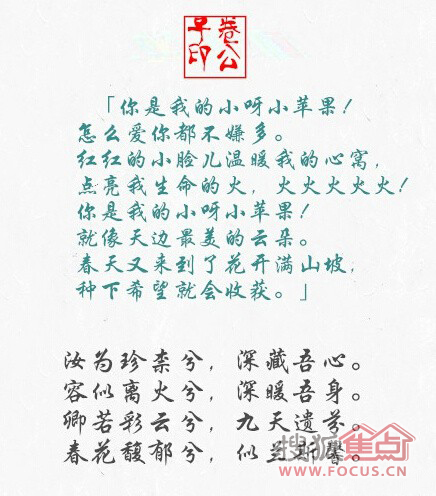 卷公子印
「你是我的小呀小苹果!
怎么爱你都不嫌多。
红红的小脸儿温暖我的心窝,
点亮我生命的火,火火火火火!
你是我的小呀小苹果!
就像天边最美的云朵。
春天又来到了花开满山坡,
种下希望就会收获。」
汝为珍柰兮,深藏吾心。
容似离火兮,深暖吾身。
卿若彩云兮,九天遗芬。
春花馥郁兮,似兰斯馨。
搜狐焦点
WWW.FOCUS.CN